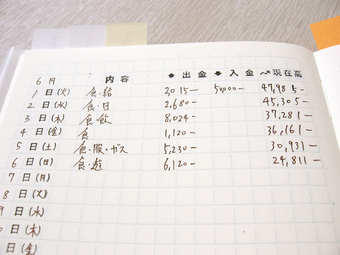 6月 内容 ◆出金 ◆入金 現在高
1日(火) 食・給 2,015− 50,000− 47,985−
2日(水) 食・日 2,680− 45,305−
3日(木) 食・飲 8,024− 37,281−
4日(金) 食 1,120− 36,161−
5日(土) 食・服・ガス 5,230− 30,931−
6日(日) 食・遊 6,120− 24,811−
7日(月)
8日(火)
9日(水)
0日(木)
日(金)